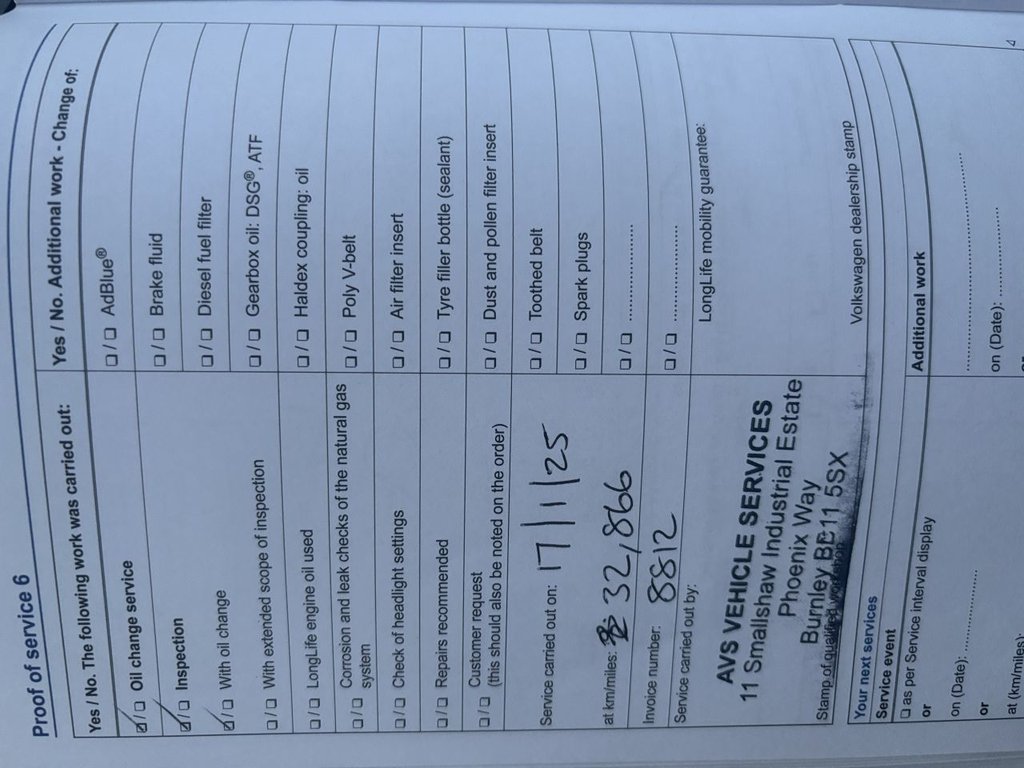 Proof of service 6
Yes / No. The following work was carried out:
☑/☐ Oil change service
☑/☐ Inspection
☑/☐ With oil change
☐/☐ With extended scope of inspection
☐/☐ LongLife engine oil used
☐/☐ Corrosion and leak checks of the natural gas
system
☐/☐ Check of headlight settings
☐/☐ Repairs recommended
☐/☐ Customer request
(this should also be noted on the order)
Service carried out on: 17/1/25
at km/miles: 32,866
Invoice number: 8812
Service carried out by:
AVS VEHICLE SERVICES
11 Smallshaw Industrial Estate
Phoenix Way
Burnley BB11 5SX
Stamp of qualified workshop
Yes / No. Additional work - Change of:
☐/☐ AdBlue®
☐/☐ Brake fluid
☐/☐ Diesel fuel filter
☐/☐ Gearbox oil: DSG®, ATF
☐/☐ Haldex coupling: oil
☐/☐ Poly V-belt
☐/☐ Air filter insert
☐/☐ Tyre filler bottle (sealant)
☐/☐ Dust and pollen filter insert
☐/☐ Toothed belt
☐/☐ Spark plugs
☐/☐ ....................
☐/☐ ....................
LongLife mobility guarantee:
Volkswagen dealership stamp
Your next services
Service event
☐ as per Service interval display
or
on (Date): ....................
or
at (km/miles):
Additional work
....................
on (Date): ....................
or